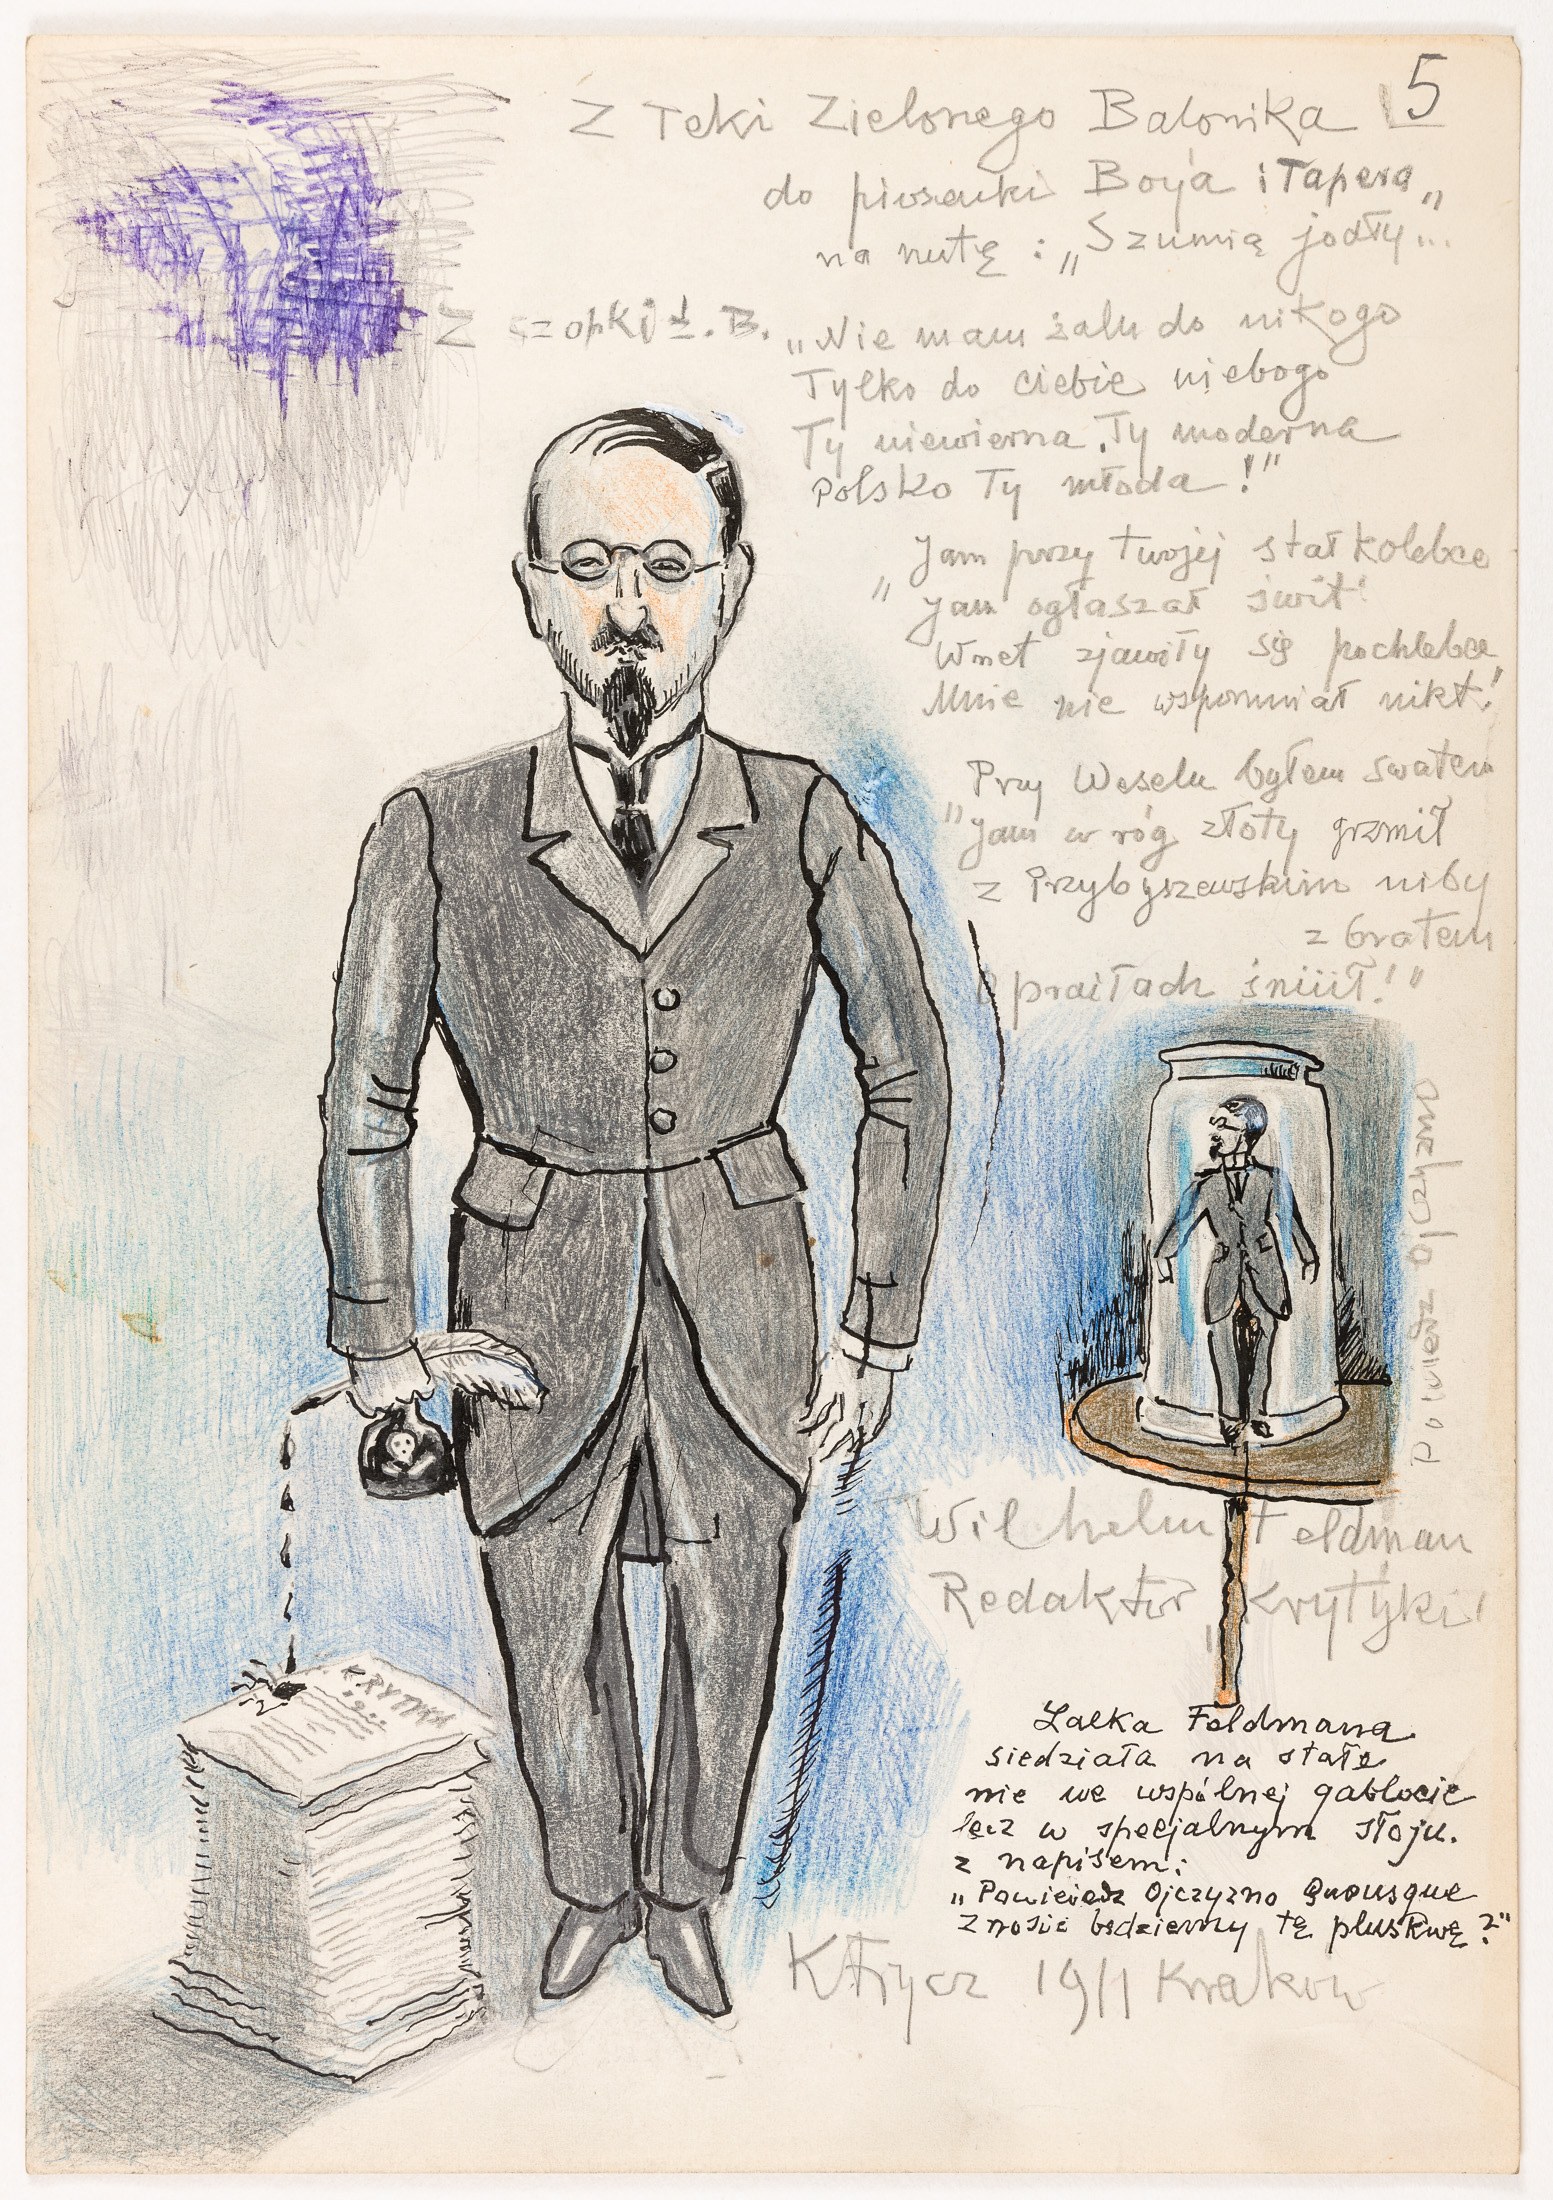 5
Z Teki Zielonego Balonika
do piosenki Boy'a i Tapera"
na nutę : „Szumią jodły...
Z szopki Z. B.
„Nie mam żalu do nikogo
Tylko do ciebie niebogo
Ty niewierna, Ty moderna
Polsko Ty młoda !"
„Jam przy twojej stał kolebce
Jam ogłaszał świt!
Wnet zjawiły się pochlebce
Mnie nie wspomniał nikt!
Przy Weselu byłem swatem
"Jam w róg złoty grzmił
z Przybyszewskim niby
z bratem
śnił!"
Powiedz Ojczyzno
Wilhelm Feldman
Redaktor „Krytyki"
KRYTYKA
Lalka Feldmana
siedziała na stałe
nie we wspólnej gablocie
lecz w specjalnym słoju.
z napisem:
„Powiedz Ojczyzno Quousque
znosić będziemy tę pluskwę?"
KFrycz 1911 Kraków